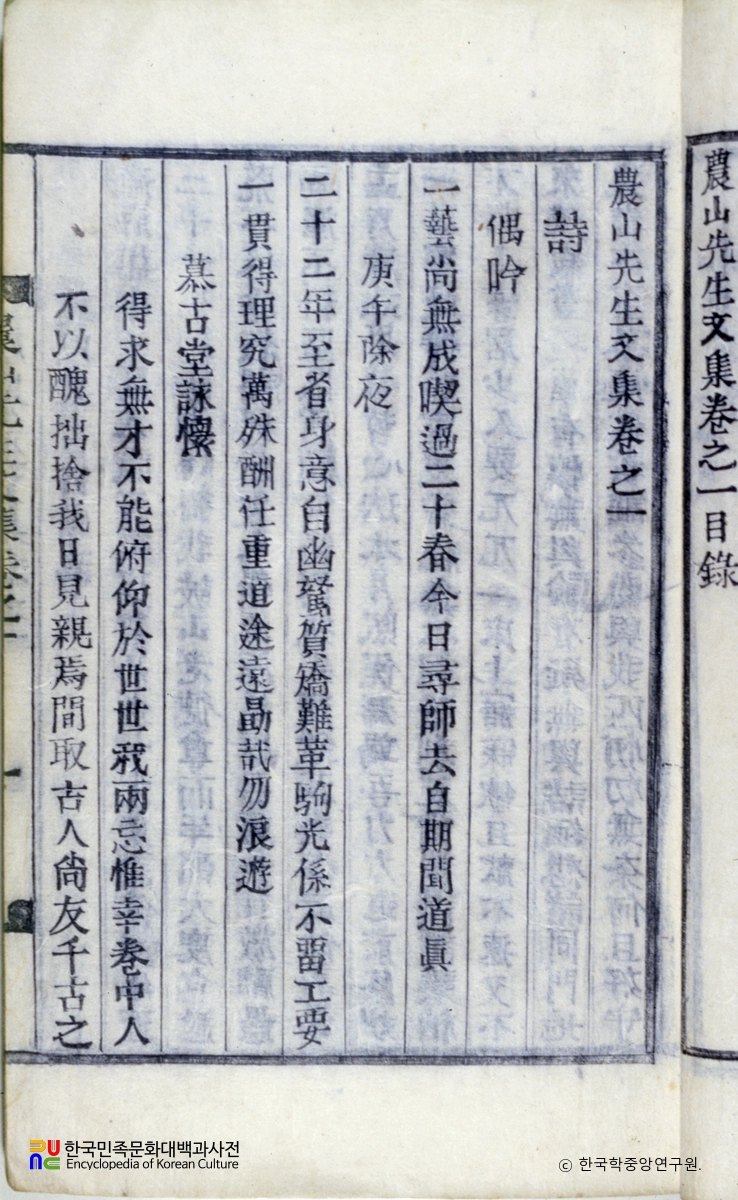 農山先生文集卷之一目錄
農山先生文集卷之一
詩
偶吟
一藝尚無成喫過二十春今日尋師去自期聞道眞
庚午除夜
二十二年至省身意自幽駑質矯難革駒光係不留工要
一貫得理究萬殊酬任重道途遠勖哉勿浪遊
慕古堂詠懷
得求無才不能俯仰於世世我兩忘惟幸卷中人
不以醜拙捨我日見親焉間取古人尙友千古之
農山先生文集卷之一
一
한국민족문화대백과사전
Encyclopedia of Korean Culture
ⓒ 한국학중앙연구원.